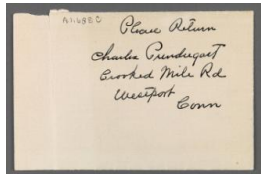 A1.698 D
Please Return
Charles Prendergast
Crooked Mile Rd
Westport
Conn